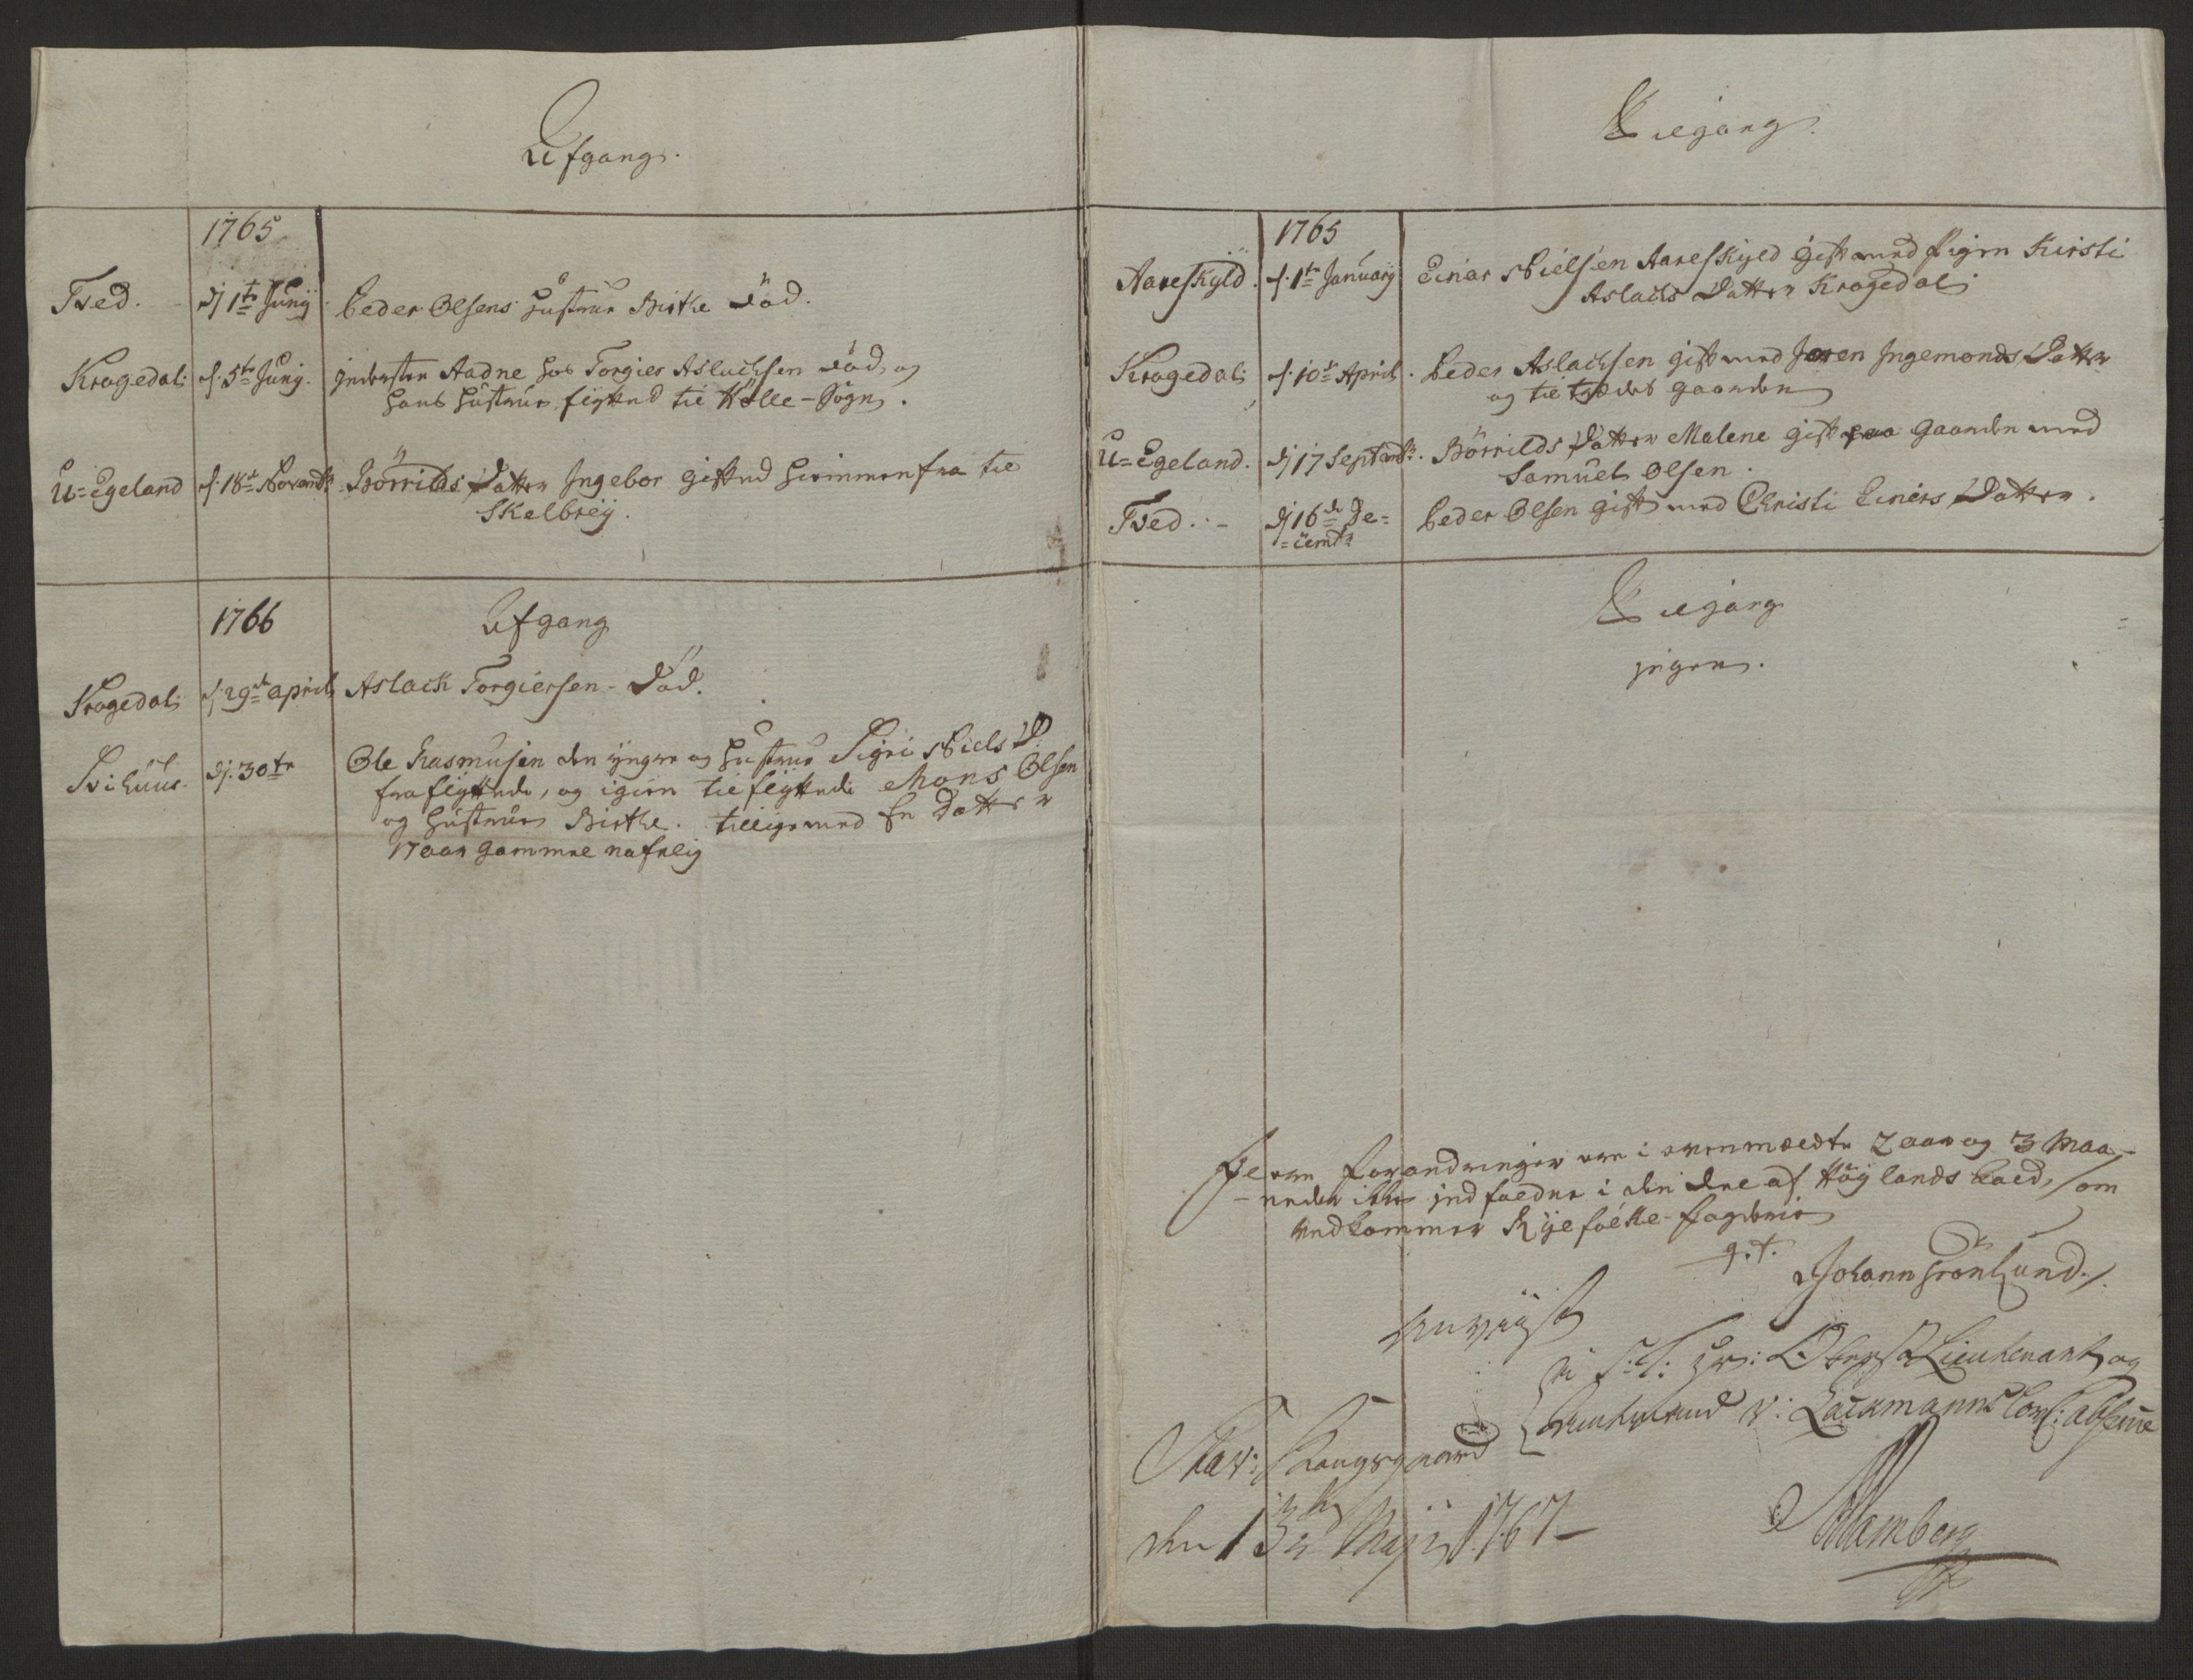 Afgang.
1765
Tved. - dj 1te Junij Peder Olsens Hustrue Birthe död.
Kragedal: d. 5te Junij. Inderster Aadne hos Torgier Aslachsen död, og
hans hustrue flytted til Hölle-Sogn.
U=Egeland d. 18de Novembr Börrilds Datter Ingebor gifted herimmenfra til
Skelbreij.
1766 Afgang
Kragedal: d. 29de april Aslack Torgiersen - död.
Svihuus. dj. 30te Ole Rasmusen den yngre og Hustrue Sigri Niels D.
fraflyttede, og igien tilflyttede Mons Olsen
og Hustrue Birthe. tilligemed En Datter
17 aar gammel nafnlig
Tilgang.
1765
Aareskyld. d. 1te January Einar Nielsen Aareskyld gift med Pigen Kirsti
Aslachs Datter Kragedal
Kragedal; d. 10de April. Peder Aslachsen gift med Joren Ingemonds Datter
og tiltrædet gaarden
U=Egeland. dj 17 Septembr. Börrilds Datter Malene gift paa gaarden med
Samuel Olsen.
Tved. - dj 16de De=
=cembr Peder Olsen gift med Christi Einers Datter.
Tilgang
ingen.
Flere Forandringer ere i ovenmeldte 2 aar og 3 Maa-
-neder ikke indfaldne i den deel af Höylands Præd, som
vedkommer Ryefölke-Fogderie
q.t. Johann Grönlund./.
Anviist
i S:T: Hr: Oberst Lieutenant og
Amtmand v: Lackmanns Con: absence
Stav: Kongsgaard
den 13de Maji 1767
Mamberg